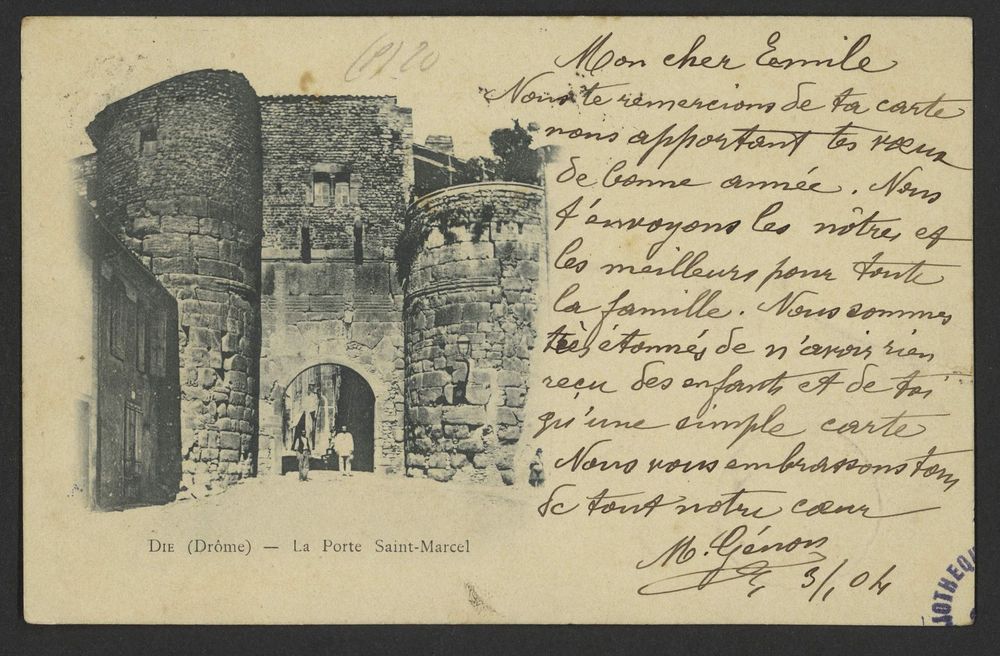 Mon cher Emile
Nous te remercions de ta carte
nous apportant tes vœux
de bonne année. Nous
t'envoyons les nôtres et
les meilleurs pour toute
la famille. Nous sommes
très étonnés de n'avoir rien
reçu des enfants et de toi
qu'une simple carte
Nous vous embrassons tous
de tout notre cœur
M. Génon
3/1 04
DIE (Drôme) — La Porte Saint-Marcel